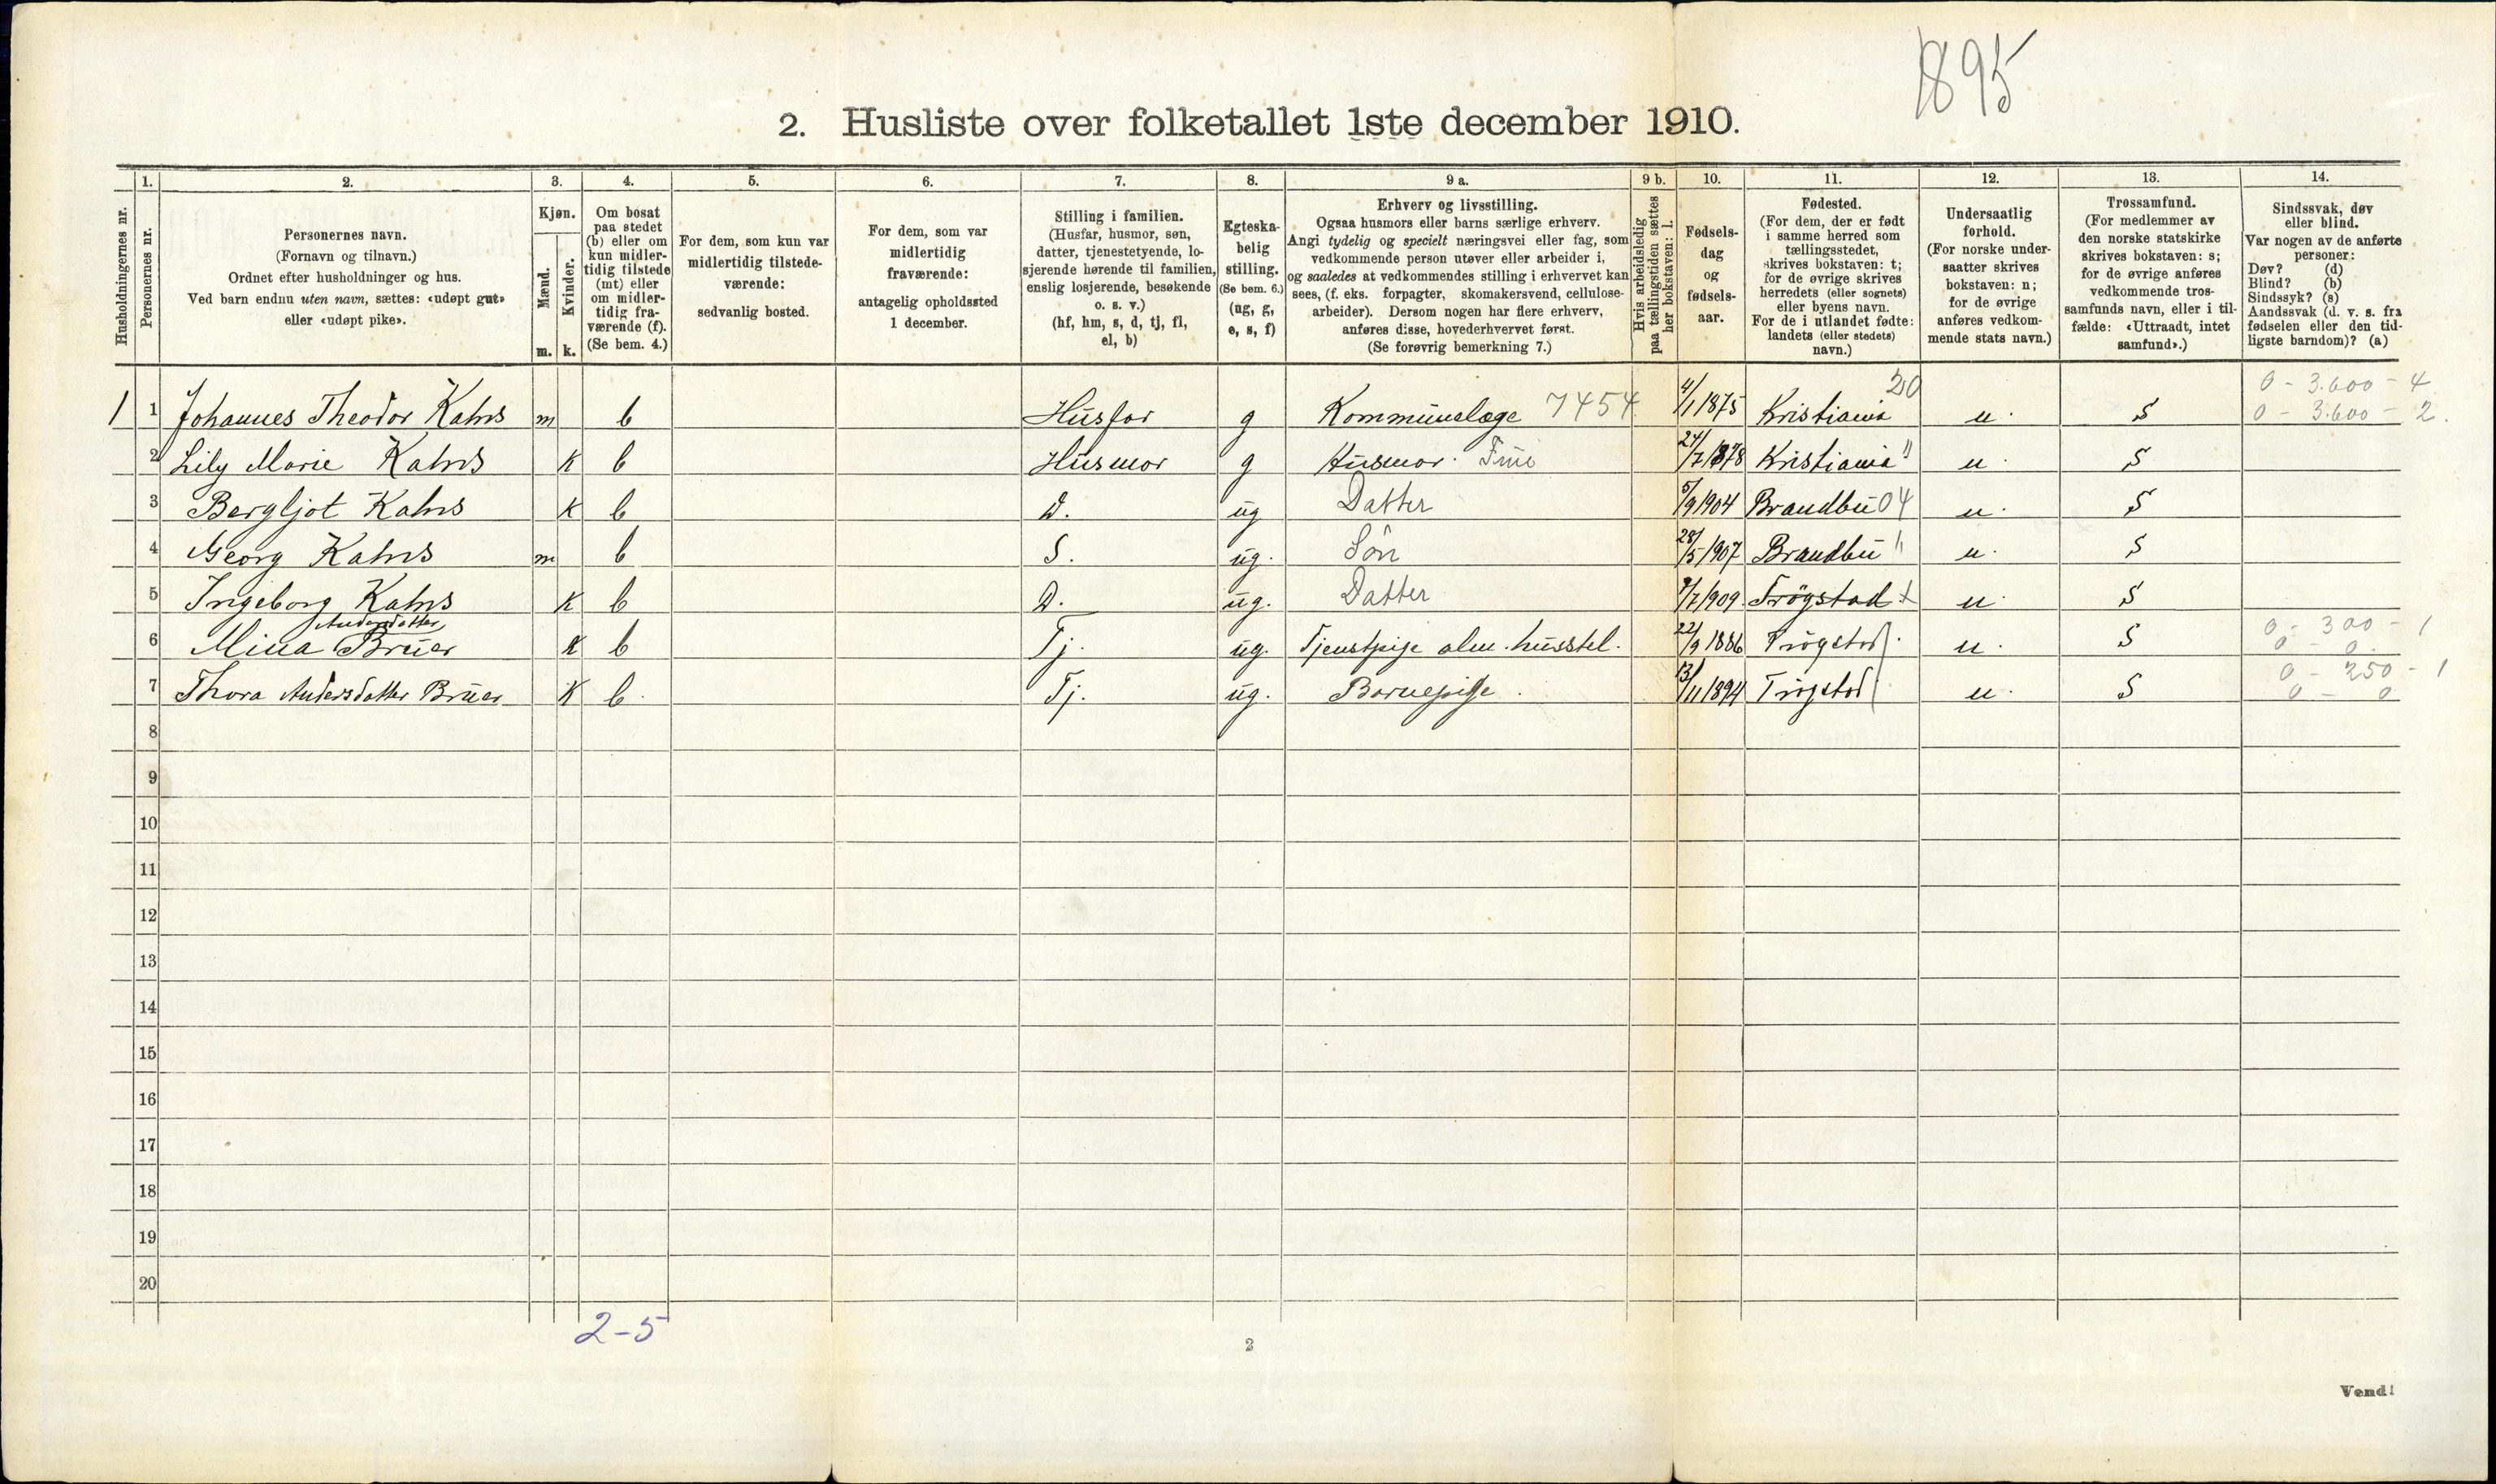 1895
2. Husliste over folketallet 1ste december 1910.
Husholdningernes nr.
1.
Personernes nr.
2.
Personernes navn.
(Fornavn og tilnavn.)
Ordnet efter husholdninger og hus.
Ved barn endnu uten navn, sættes: «udøpt gut»
eller «udøpt pike».
3.
Kjøn.
Mænd.
Kvinder.
m. k.
4.
Om bosat
paa stedet
(b) eller om
kun midler-
tidig tilstede
(mt) eller
om midler-
tidig fra-
værende (f).
(Se bem. 4.)
5.
For dem, som kun var
midlertidig tilstede-
værende:
sedvanlig bosted.
6.
For dem, som var
midlertidig
fraværende:
antagelig opholdssted
1 december.
7.
Stilling i familien.
(Husfar, husmor, søn,
datter, tjenestetyende, lo-
sjerende hørende til familien,
enslig losjerende, besøkende
o. s. v.)
(hf, hm, s, d, tj, fl,
el, b)
8.
Egteska-
belig
stilling.
(Se bem. 6.)
(ug, g,
e, s, f)
9 a.
Erhverv og livsstilling.
Ogsaa husmors eller barns særlige erhverv.
Angi tydelig og specielt næringsvei eller fag, som
vedkommende person utøver eller arbeider i,
og saaledes at vedkommendes stilling i erhvervet kan
sees, (f. eks. forpagter, skomakersvend, cellulose-
arbeider). Dersom nogen har flere erhverv,
anføres disse, hovederhvervet først.
(Se forøvrig bemerkning 7.)
9 b.
Hvis arbeidsledig
paa tællingstiden sættes
her bokstaven: l.
10.
Fødsels-
dag
og
fødsels-
aar.
11.
Fødested.
(For dem, der er født
i samme herred som
tællingsstedet,
skrives bokstaven: t;
for de øvrige skrives
herredets (eller sognets)
eller byens navn.
For de i utlandet fødte:
landets (eller stedets)
navn.)
12.
Undersaatlig
forhold.
(For norske under-
saatter skrives
bokstaven: n;
for de øvrige
anføres vedkom-
mende stats navn.)
13.
Trossamfund.
(For medlemmer av
den norske statskirke
skrives bokstaven: s;
for de øvrige anføres
vedkommende tros-
samfunds navn, eller i til-
fælde: «Uttraadt, intet
samfund».)
14.
Sindssvak, døv
eller blind.
Var nogen av de anførte
personer:
Døv? (d)
Blind? (b)
Sindssyk? (s)
Aandssvak (d. v. s. fra
fødselen eller den tid-
ligste barndom)? (a)
20 0 - 3.600 - 4
1 1 Johannes Theodor Kahrs m b Husfar g Kommunelæge 7454 4/1 1875 Kristiania n. S 0 - 3.600 - 2.
2 Lily Marie Kahrs K b Husmor g Husmor. Frue 24/7 1878 Kristiania " n. S
3 Bergljot Kahrs K b D. ug Datter 5/9 1904 Brandbu 04 n. S
4 Georg Kahrs m b S. ug. Sön 28/5 1907 Brandbu " n. S
5 Ingeborg Kahrs K b D. ug. Datter /7 1909. Trögstad t n. S
Andersdatter 0 - 300 - 1
6 Mina Bruer K b Tj. ug. Tjenstpige alm. husstel. 22/9 1886 Trögstad n. S 0 - 0.
0 - 250 - 1
7 Thora Andersdatter Bruer K b. Tj. ug. Barnepige. 13/11 1894 Trögstad n. S 0 - 0
8
9
10
11
12
13
14
15
16
17
18
19
20
2-5
2
Vend!